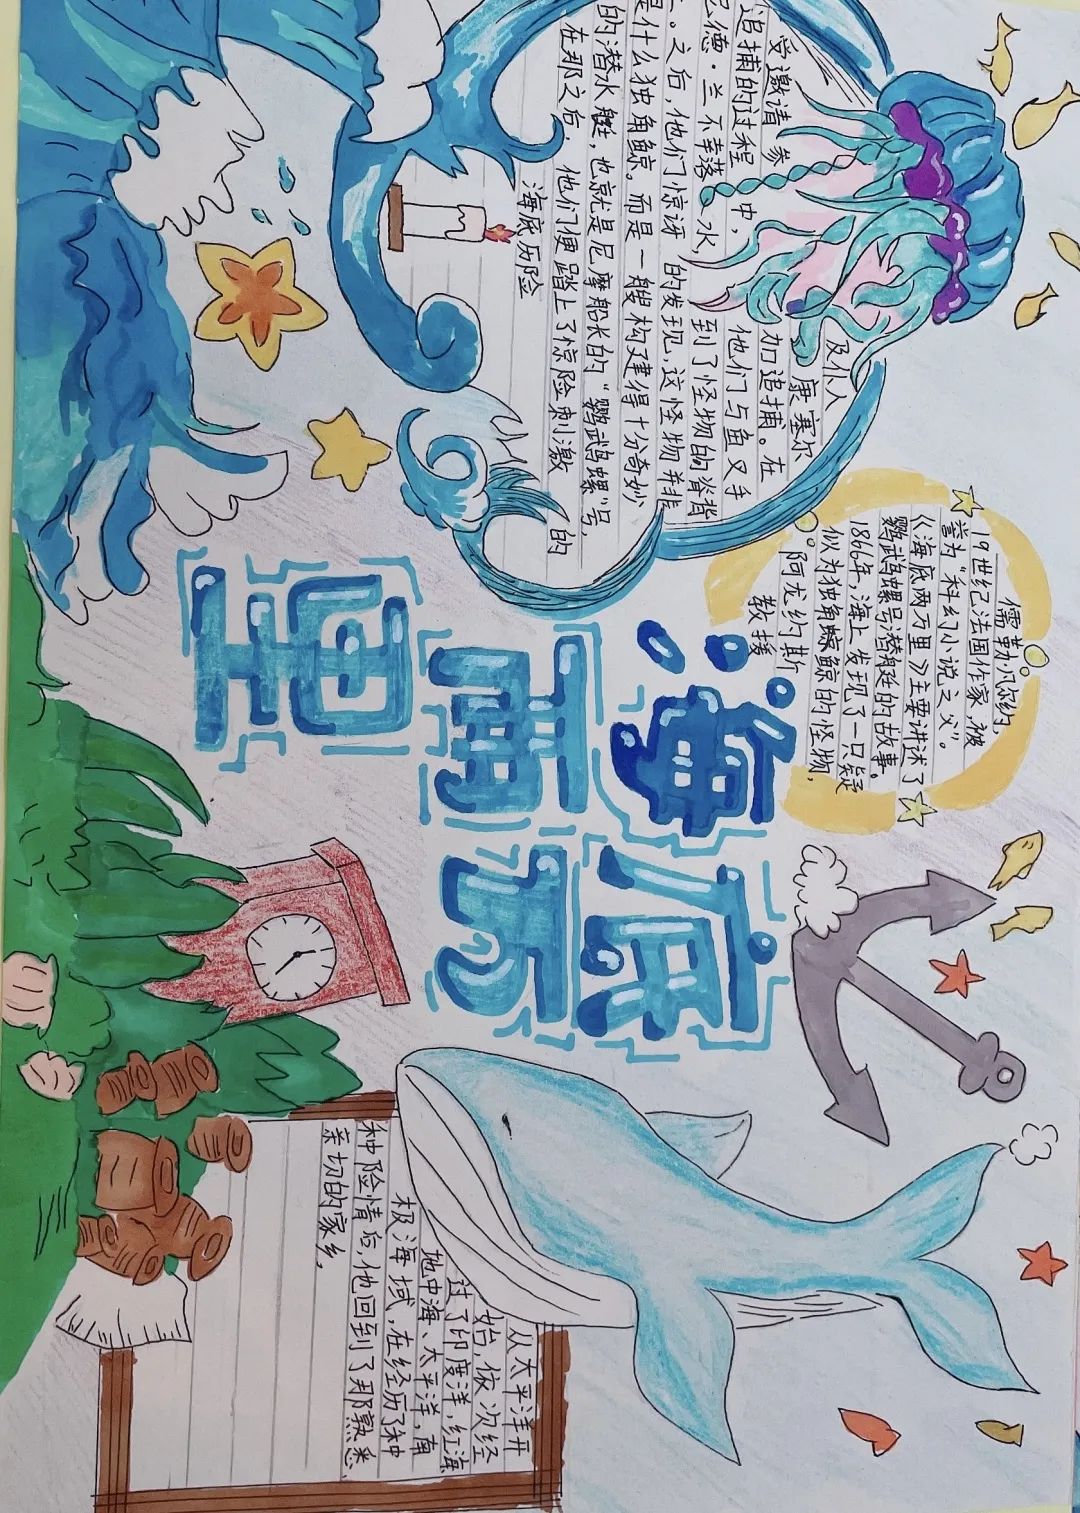 儒勒凡尔约,
19世纪法国作家,被
誉为“科幻小说之父”。
《海底两万里》主要讲述了
鹦鹉螺号潜艇的故事。
1866年,海上发现了一只疑
似为独角鲸的怪物,
阿龙约斯
教授
及仆人
康塞尔
受邀请参加追捕。在
追捕的过程中,他们与鱼叉手
尼德·兰不幸落水,到了怪物的脊背
上。之后,他们惊讶的发现,这怪物并非
是什么独角鲸。而是一艘构建得十分奇妙
的潜水艇,也就是尼摩船长的“鹦鹉螺”号,
在那之后,他们便踏上了惊险刺激的
海底历险
海底
两万
里
从太平洋开
始,依次经
过了印度洋,红海
地中海、太平洋,南
极海域,在经历了种
种险情后,他回到了那熟悉、
亲切的家乡,